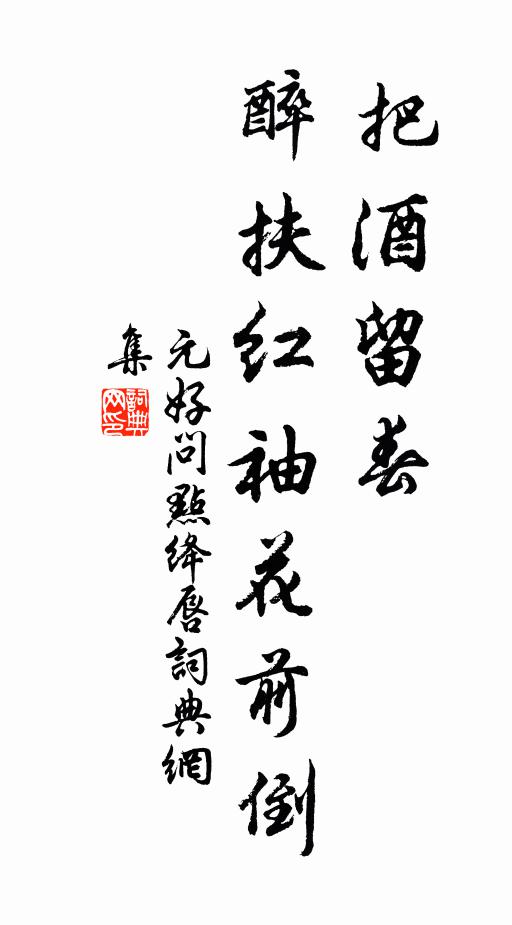 把酒留春
醉扶红袖花前倒
元好问點绛唇詞典網
集
詞典
网印